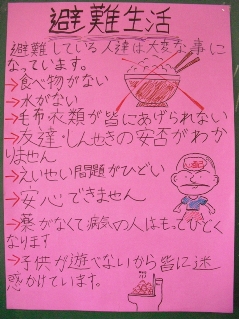 避難生活
避難している人達は大変な事に
なっています。
→食べ物がない
→水がない
→毛布衣類が皆にあげられない
→友達・しんせきの安否がわか
りません
→えいせい問題がひどい
→安心できません
→薬がなくて病気の人はもっとひどく
なります
→子供が遊べないから皆に迷
惑かけています。